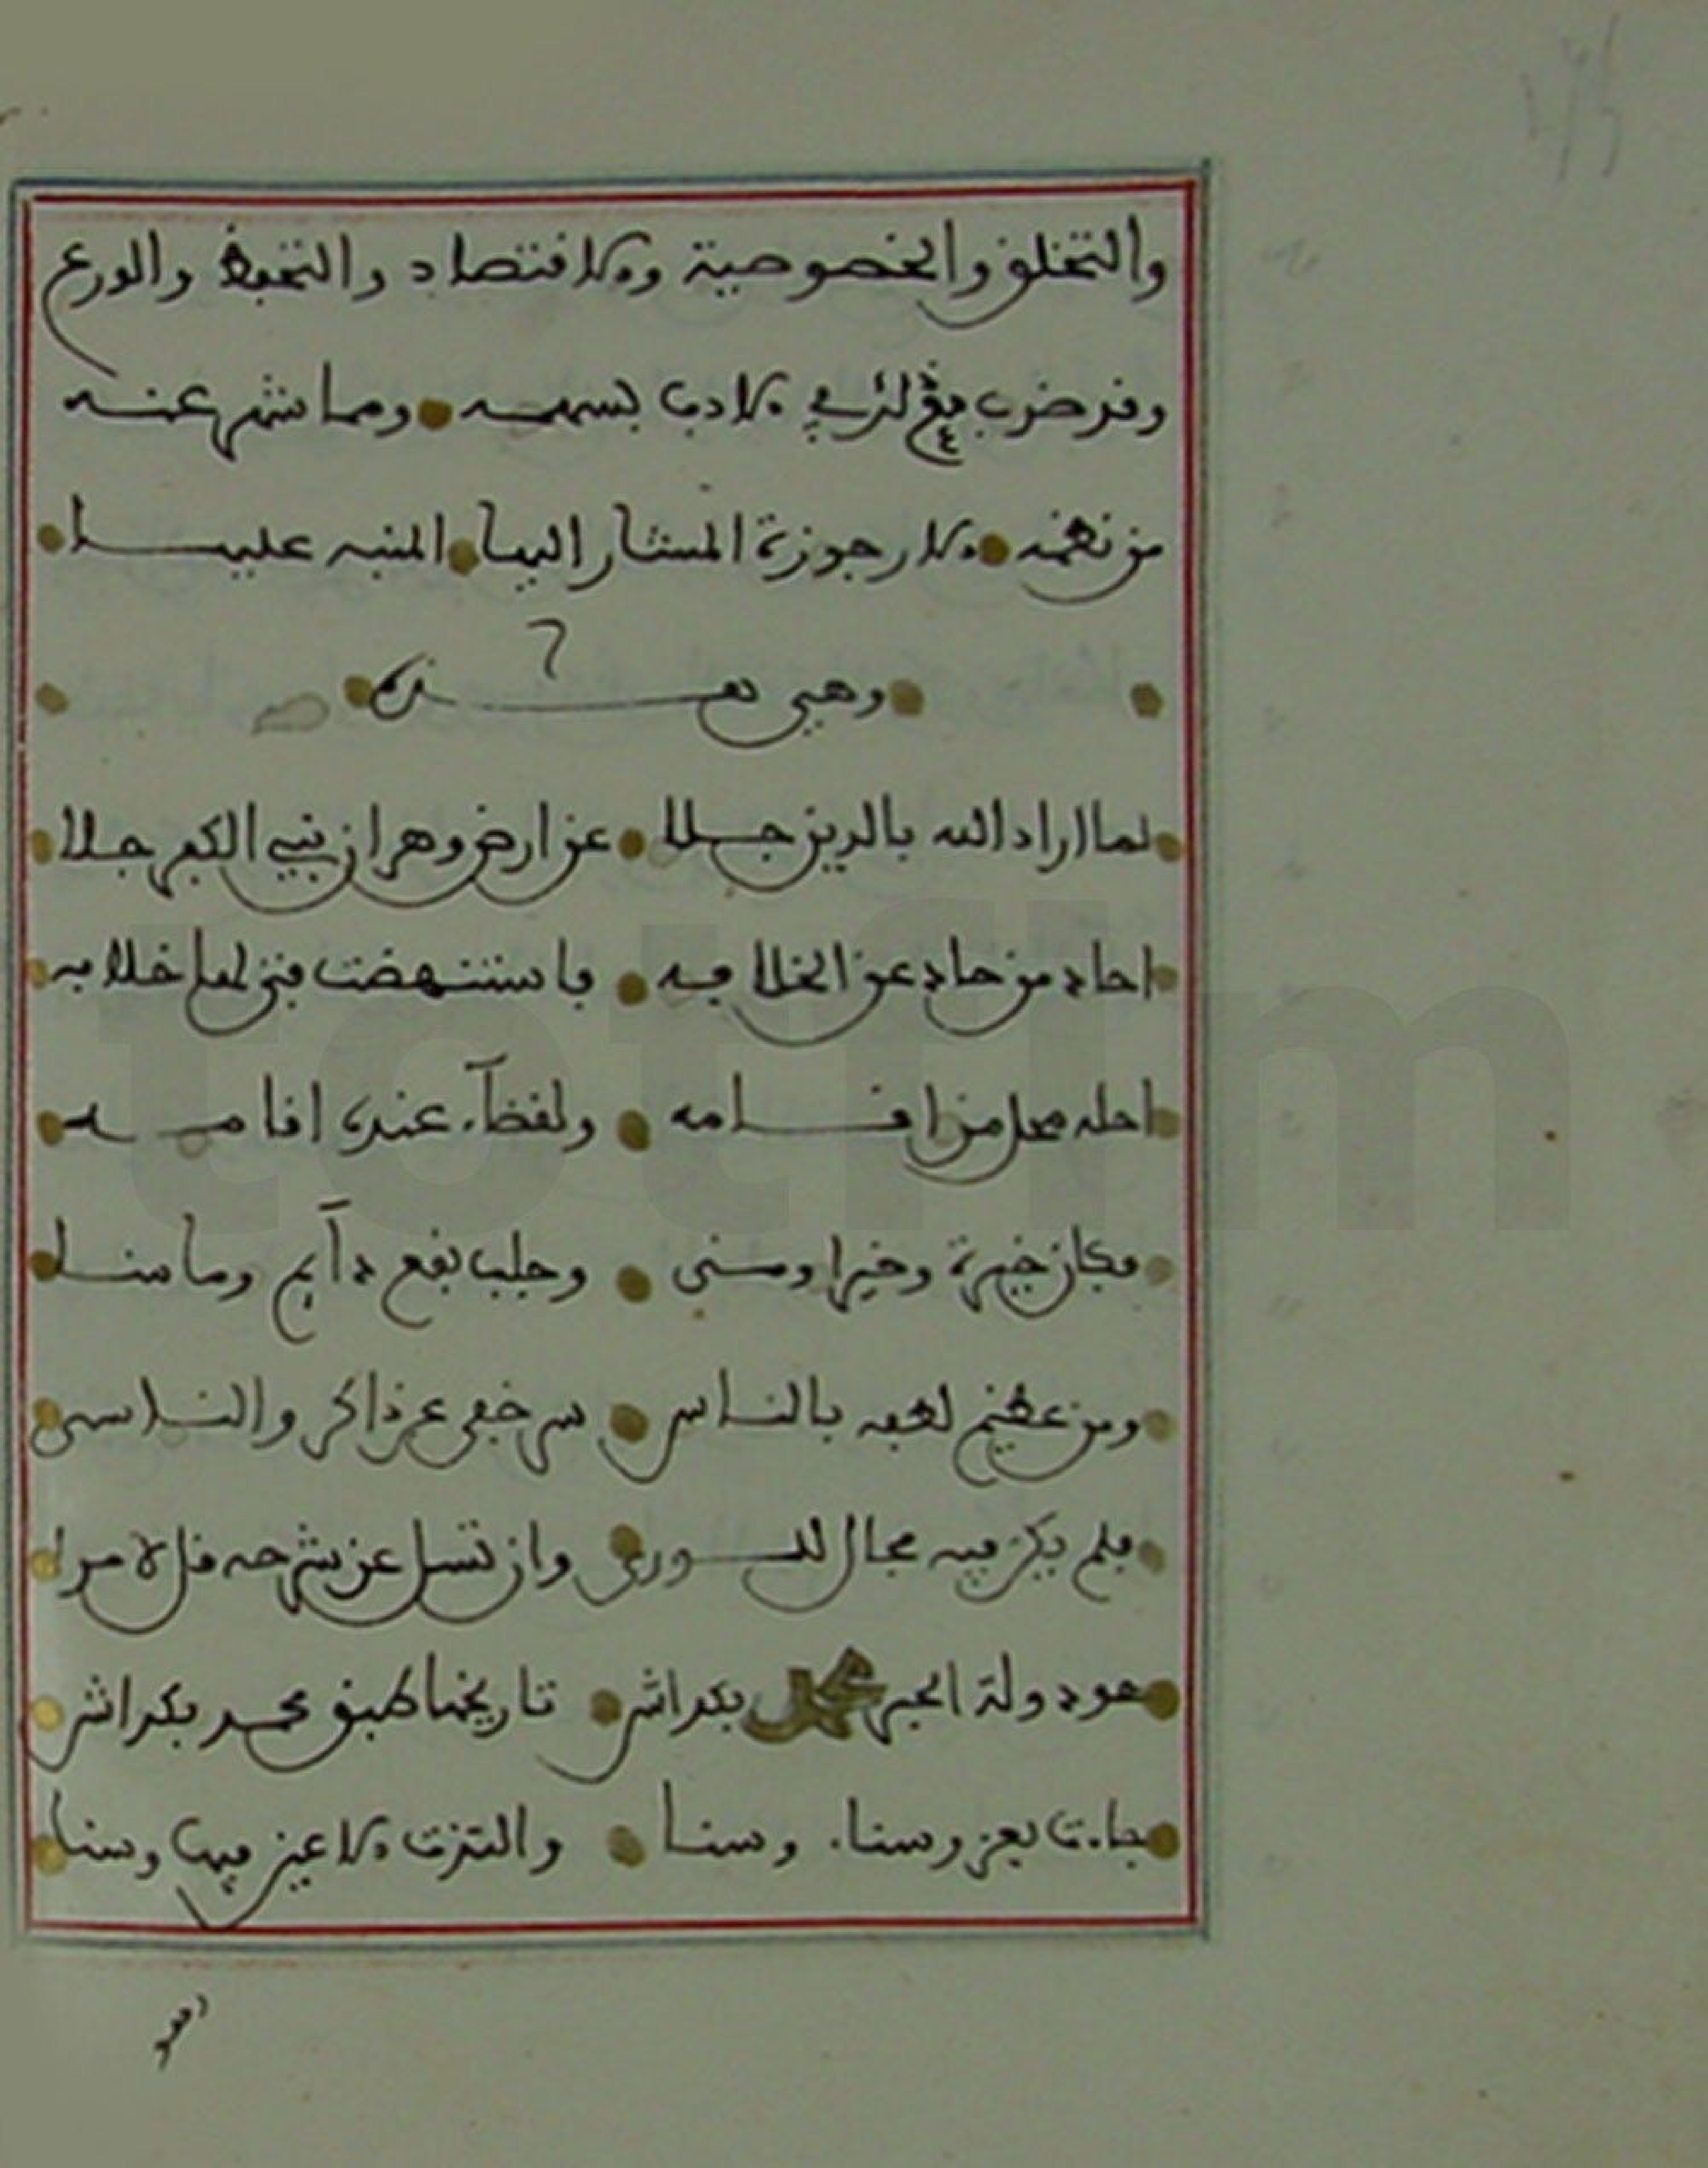 والتخلق والخصوصية والاقتصاد والتحفظ والورع
وقد ضرب في الادب بسهمه وما شهر عنه
من نظمه الارجوزة المشار اليها المنبه عليها
وهي هذه
لما اراد الله بالدين جللا عن ارض وهران بنيي الكفر جلا
احاد من حاد عن الخلافه فاستنهضت فتى لها خلافه
احله محل من اقامه ولفظاء عنده اقامه
فكان خيرة وخيرا وسنى وجلب نفع دآيم وما سنا
ومن عظيم لطفه بالناس سر خفي عن ذاكر والناسى
فلم يكن فيه مجال للورى وان تسل عن شرحه قل لا مرا
عود دولة الحبر محمد بكداش تاريخها طبق محمد بكداش
جاءت بعز وسناء وسنا والتزت الاعين فيها وسنا